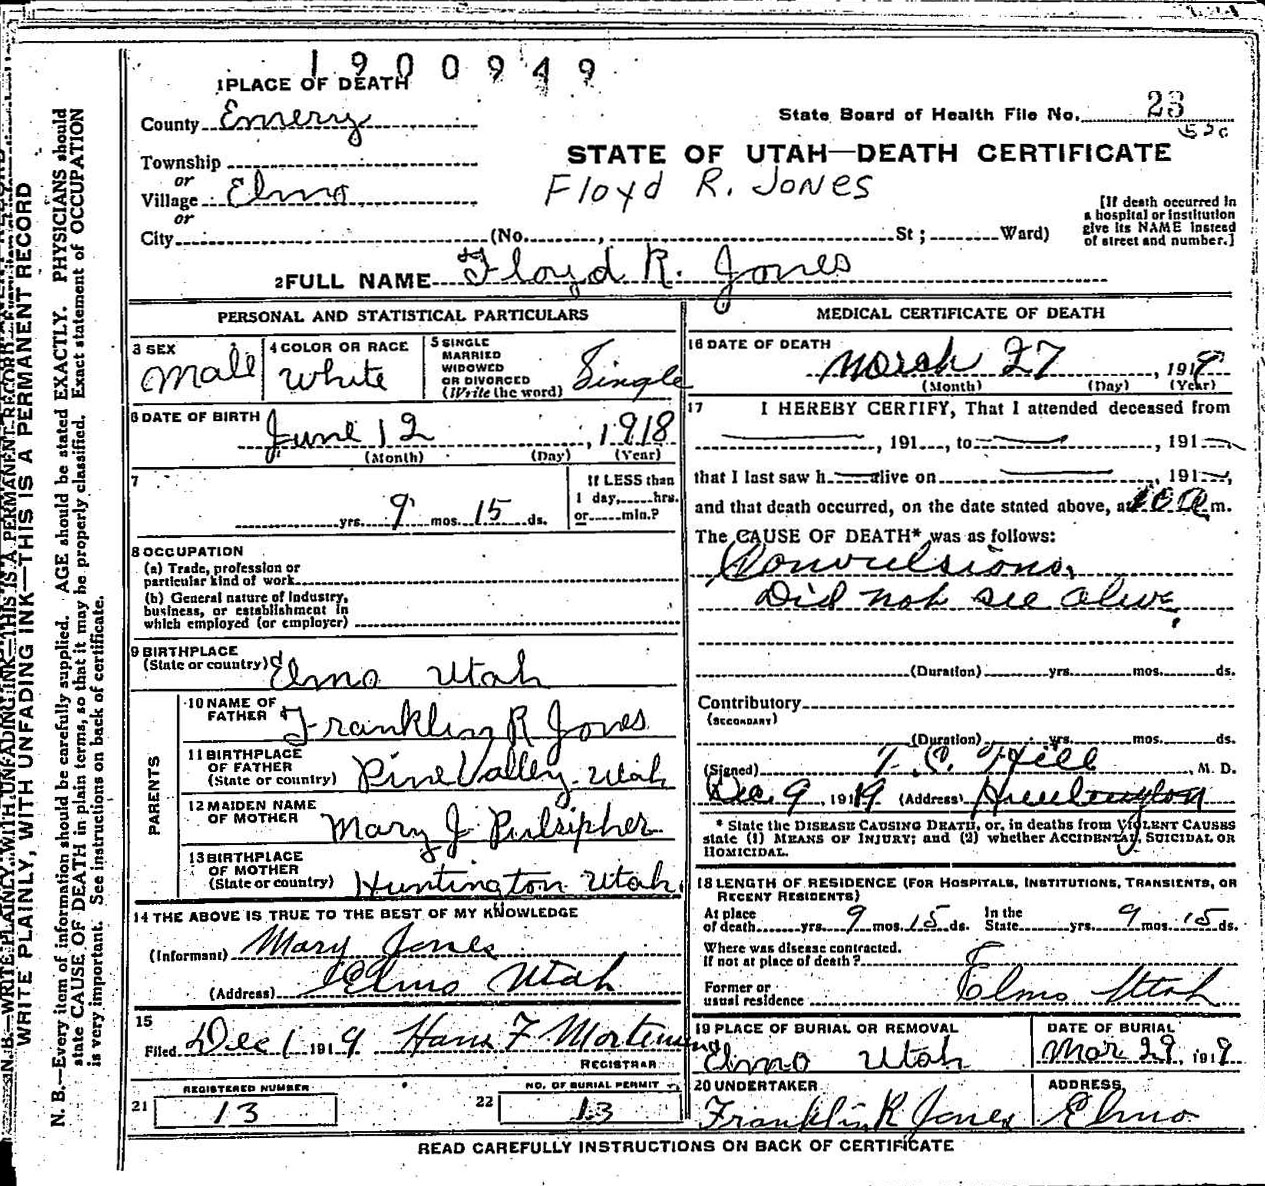 1900949
1 PLACE OF DEATH
County Emery
State Board of Health File No. 23
STATE OF UTAH—DEATH CERTIFICATE
Township
or
Village Elmo
Floyd R. Jones
or
City (No. , St ; Ward)
[If death occurred in
a hospital or institution
give its NAME instead
of street and number.]
2 FULL NAME Floyd R. Jones
PERSONAL AND STATISTICAL PARTICULARS
3 SEX
Male
4 COLOR OR RACE
White
5 SINGLE
MARRIED
WIDOWED
OR DIVORCED
(Write the word)
Single
6 DATE OF BIRTH
June 12, 1918
(Month) (Day) (Year)
7
yrs. 9 mos. 15 ds.
If LESS than
1 day, hrs.
or min.?
8 OCCUPATION
(a) Trade, profession or
particular kind of work
(b) General nature of industry,
business, or establishment in
which employed (or employer)
9 BIRTHPLACE
(State or country) Elmo Utah
PARENTS
10 NAME OF
FATHER Franklin R Jones
11 BIRTHPLACE
OF FATHER
(State or country) Pine Valley Utah
12 MAIDEN NAME
OF MOTHER Mary J Pulsipher
13 BIRTHPLACE
OF MOTHER
(State or country) Huntington Utah.
14 THE ABOVE IS TRUE TO THE BEST OF MY KNOWLEDGE
(Informant) Mary Jones
(Address) Elmo Utah
15
Filed Dec 1 1919 Hans F Mortensen
REGISTRAR
REGISTERED NUMBER
21 13
NO. OF BURIAL PERMIT
22 13
MEDICAL CERTIFICATE OF DEATH
16 DATE OF DEATH
March 27, 1919
(Month) (Day) (Year)
17 I HEREBY CERTIFY, That I attended deceased from
, 191 , to , 191
that I last saw h alive on , 191 ,
and that death occurred, on the date stated above, at m.
The CAUSE OF DEATH* was as follows:
Convulsions,
Did not see alive,
(Duration) yrs. mos. ds.
Contributory
(SECONDARY)
(Duration) yrs. mos. ds.
(Signed) T. C. Hill, M. D.
Dec. 9, 1919 (Address) Huntington
* State the DISEASE CAUSING DEATH, or, in deaths from VIOLENT CAUSES
state (1) MEANS OF INJURY; and (2) whether ACCIDENTAL, SUICIDAL OR
HOMICIDAL.
18 LENGTH OF RESIDENCE (FOR HOSPITALS, INSTITUTIONS, TRANSIENTS, OR
RECENT RESIDENTS)
At place
of death yrs. 9 mos. 15 ds.
In the
State yrs. 9 mos. 15 ds.
Where was disease contracted.
If not at place of death?
Former or
usual residence Elmo Utah
19 PLACE OF BURIAL OR REMOVAL
Elmo Utah
DATE OF BURIAL
Mar 29, 1919
20 UNDERTAKER
Franklin R Jones
ADDRESS
Elmo
READ CAREFULLY INSTRUCTIONS ON BACK OF CERTIFICATE
WRITE PLAINLY, WITH UNFADING INK—THIS IS A PERMANENT RECORD
N. B.—Every item of information should be carefully supplied. AGE should be stated EXACTLY. PHYSICIANS should
state CAUSE OF DEATH in plain terms, so that it may be properly classified. Exact statement of OCCUPATION
is very important. See instructions on back of certificate.